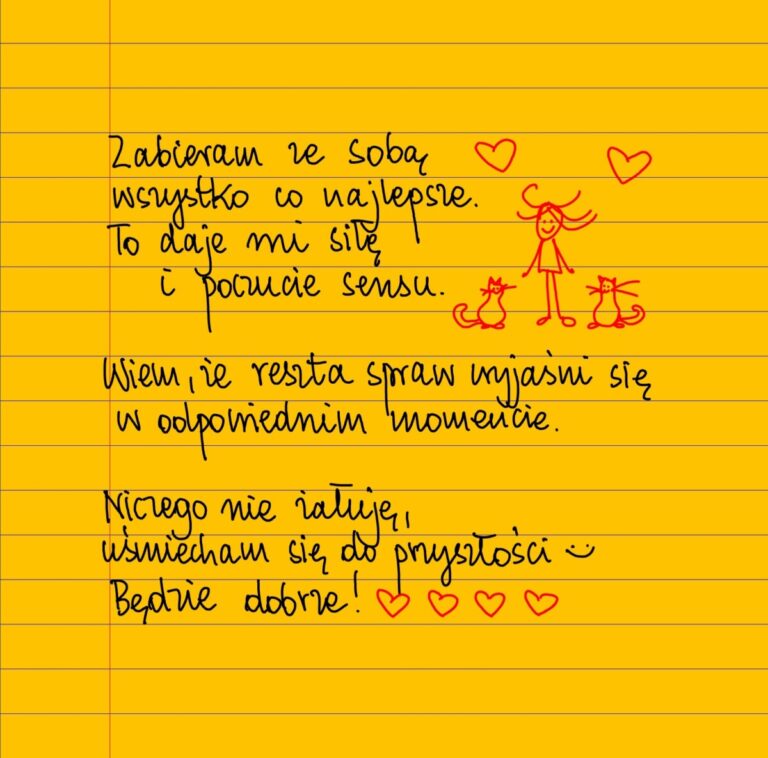 Zabieram ze sobą
wszystko co najlepsze.
To daje mi siłę
i poczucie sensu.
Wiem, że reszta spraw wyjaśni się
w odpowiednim momencie.
Niczego nie żałuję,
uśmiecham się do przyszłości :)
Będzie dobrze!